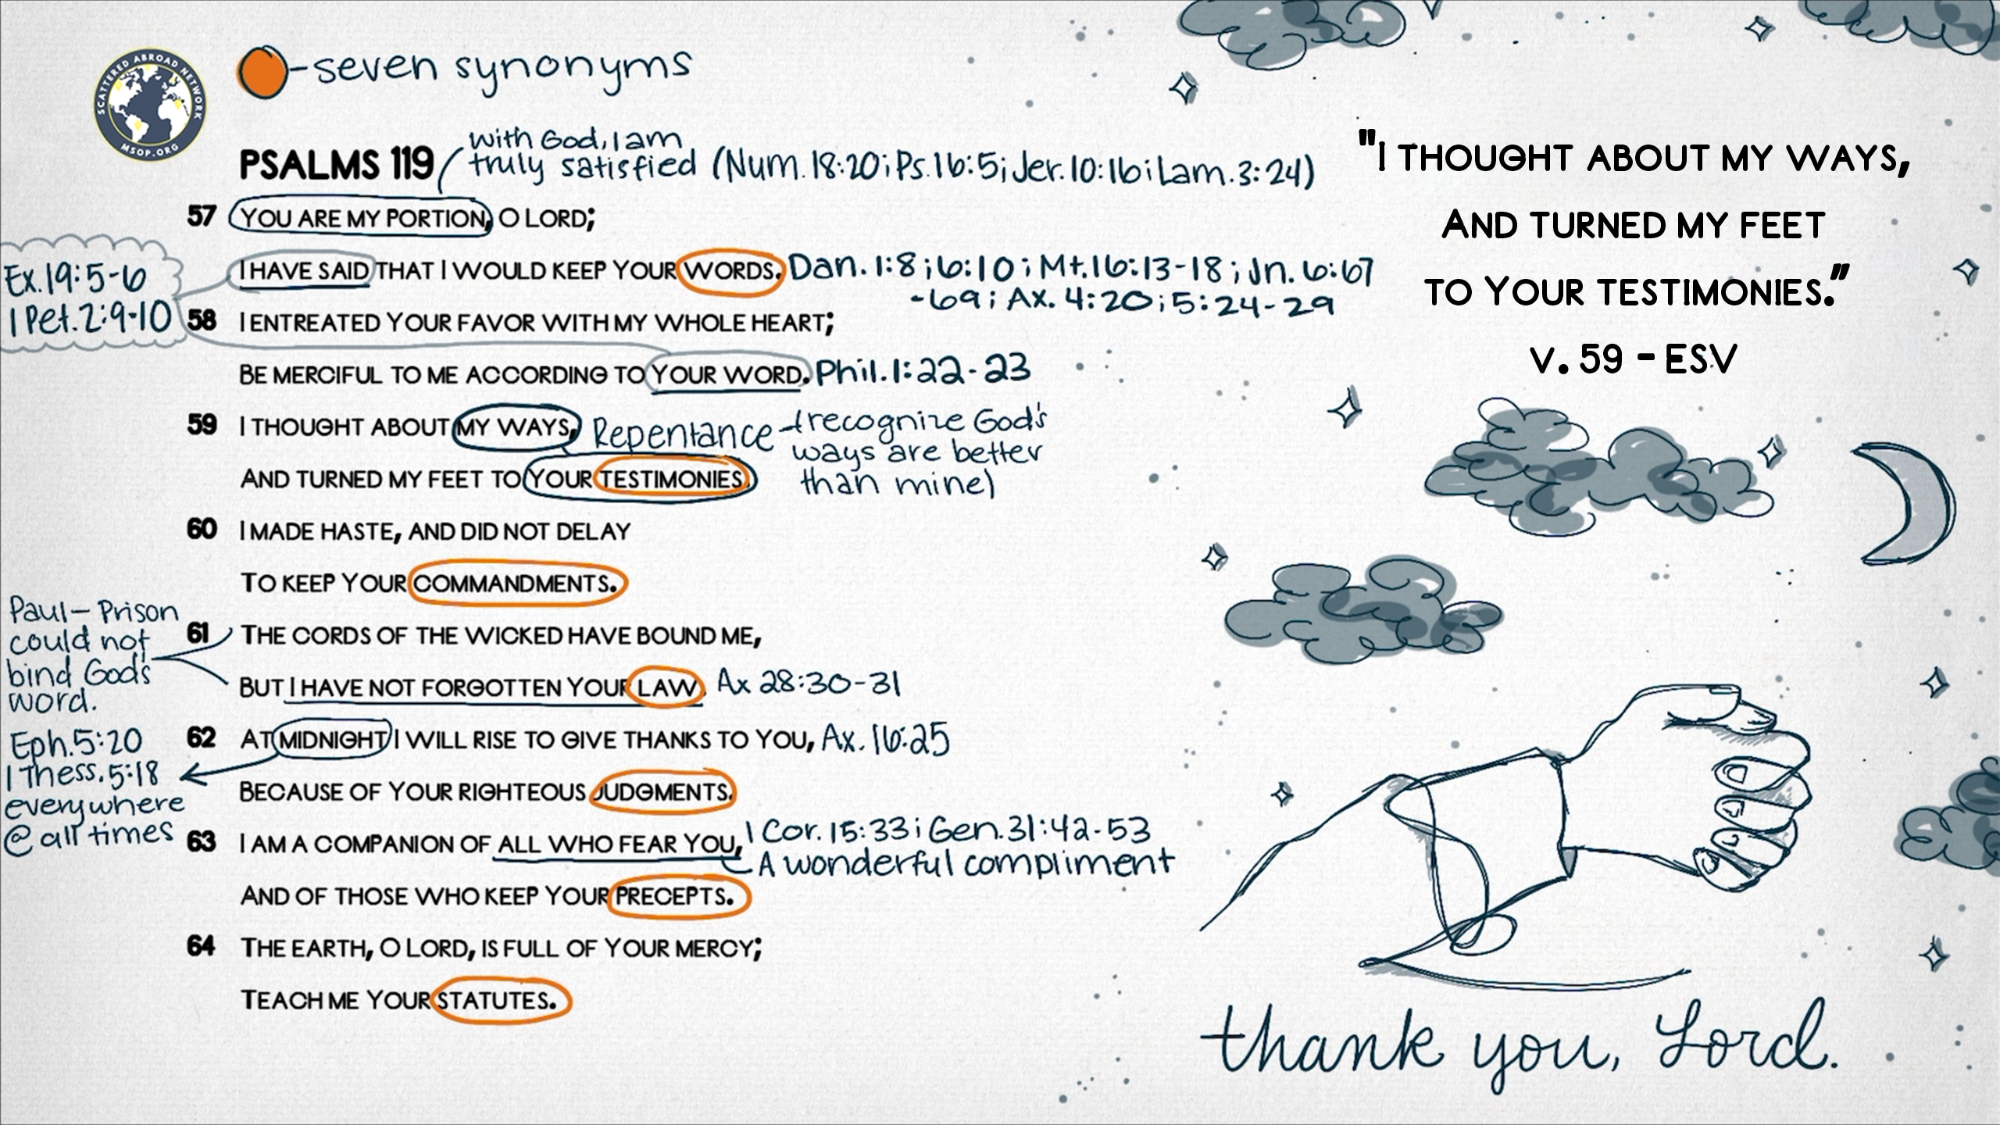 SCATTERED ABROAD NETWORK
MSOP.ORG
-seven synonyms
PSALMS 119
with God, I am
truly satisfied (Num. 18:20; Ps. 16:5; Jer. 10:16; Lam. 3:24)
57 YOU ARE MY PORTION, O LORD;
I HAVE SAID THAT I WOULD KEEP YOUR WORDS. Dan. 1:8; 6:10; Mt. 16:13-18; Jn. 6:67
-69; Ax. 4:20; 5:24-29
Ex. 19:5-6
1 Pet. 2:9-10
58 I ENTREATED YOUR FAVOR WITH MY WHOLE HEART;
BE MERCIFUL TO ME ACCORDING TO YOUR WORD. Phil. 1:22-23
59 I THOUGHT ABOUT MY WAYS, Repentance - (recognize God's
ways are better
than mine)
AND TURNED MY FEET TO YOUR TESTIMONIES.
60 I MADE HASTE, AND DID NOT DELAY
TO KEEP YOUR COMMANDMENTS.
Paul - Prison
could not
bind God's
word.
61 THE CORDS OF THE WICKED HAVE BOUND ME,
BUT I HAVE NOT FORGOTTEN YOUR LAW. Ax 28:30-31
62 AT MIDNIGHT I WILL RISE TO GIVE THANKS TO YOU, Ax. 16:25
Eph. 5:20
1 Thess. 5:18
everywhere
@ all times
BECAUSE OF YOUR RIGHTEOUS JUDGMENTS.
63 I AM A COMPANION OF ALL WHO FEAR YOU, 1 Cor. 15:33; Gen. 31:42-53
A wonderful compliment
AND OF THOSE WHO KEEP YOUR PRECEPTS.
64 THE EARTH, O LORD, IS FULL OF YOUR MERCY;
TEACH ME YOUR STATUTES.
"I THOUGHT ABOUT MY WAYS,
AND TURNED MY FEET
TO YOUR TESTIMONIES."
V. 59 - ESV
thank you, Lord.